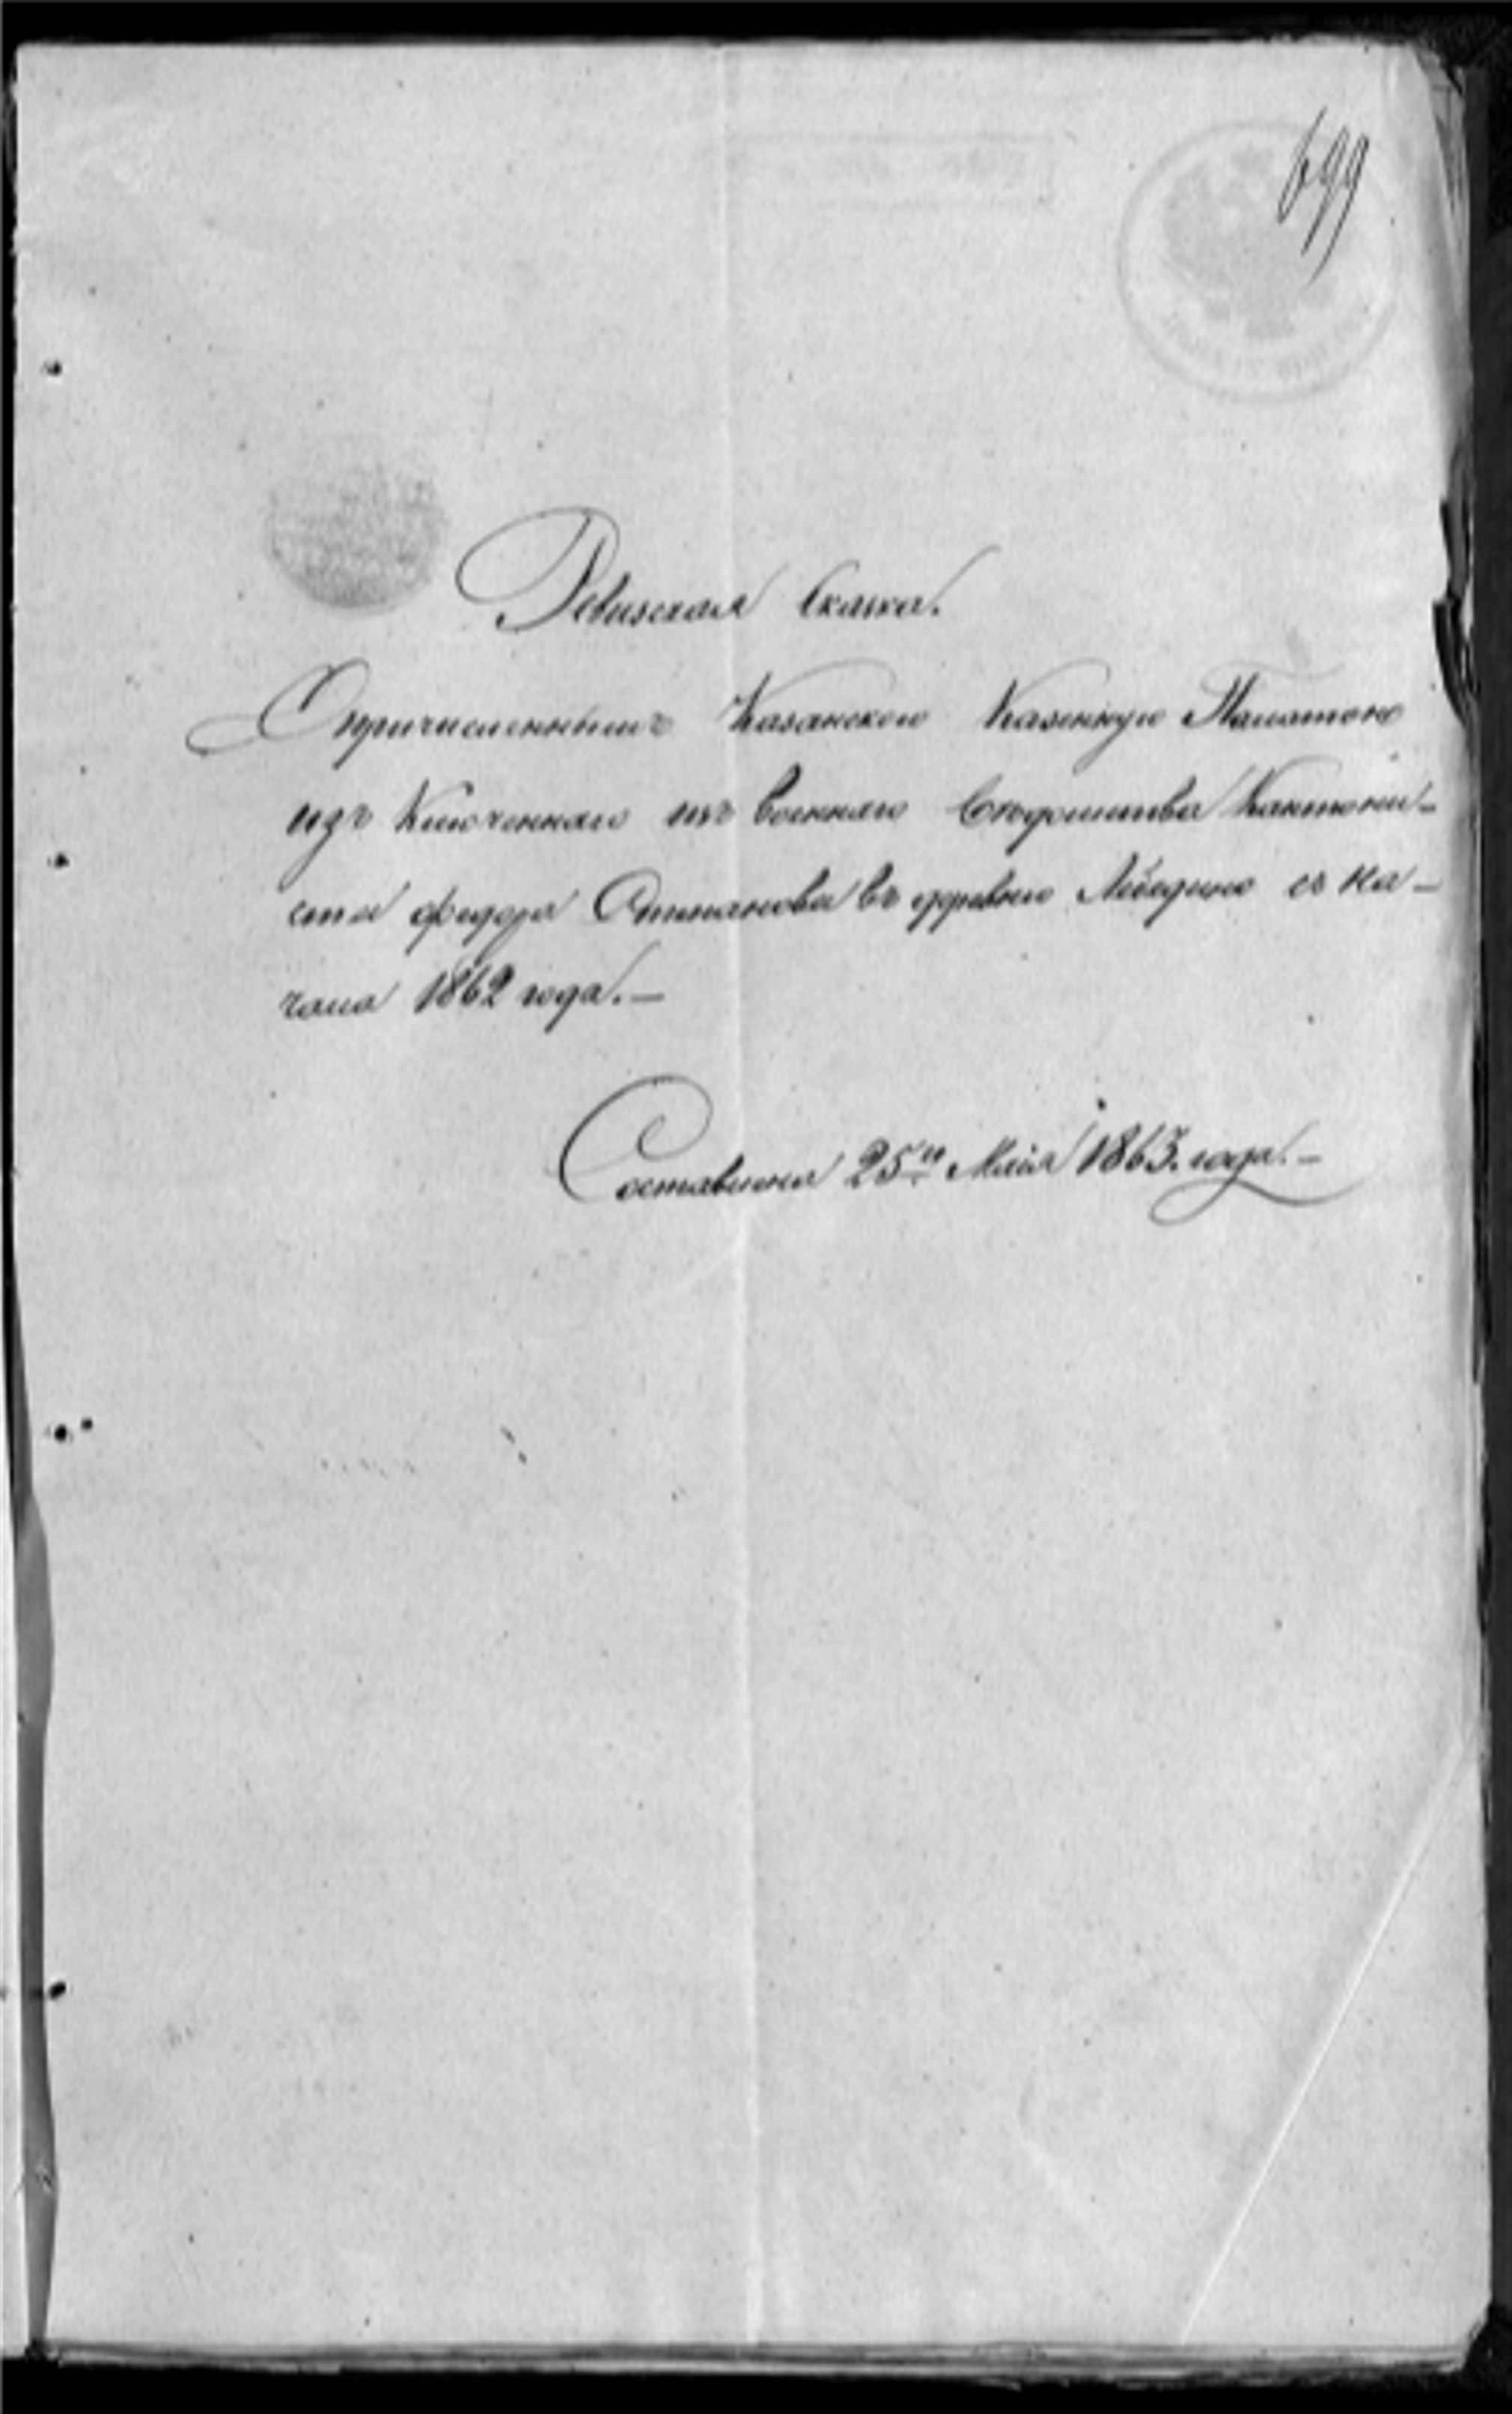 699
Ревизская Сказка.
О причисленномъ Казанскою Казенную Палатою
изъ Ключеннаго изъ военнаго вѣдомства Кантони-
ста Федора Степанова въ деревню Лебедино съ на-
чала 1862 года.—
Составлена 25го Мая 1863. года.—